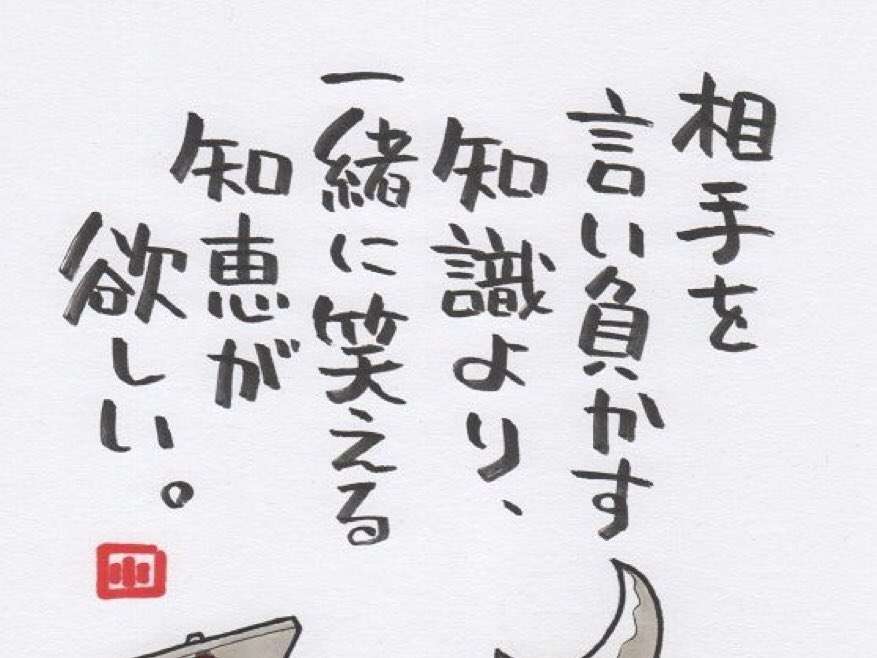 相手を
言い負かす
知識より、
一緒に笑える
知恵が
欲しい。